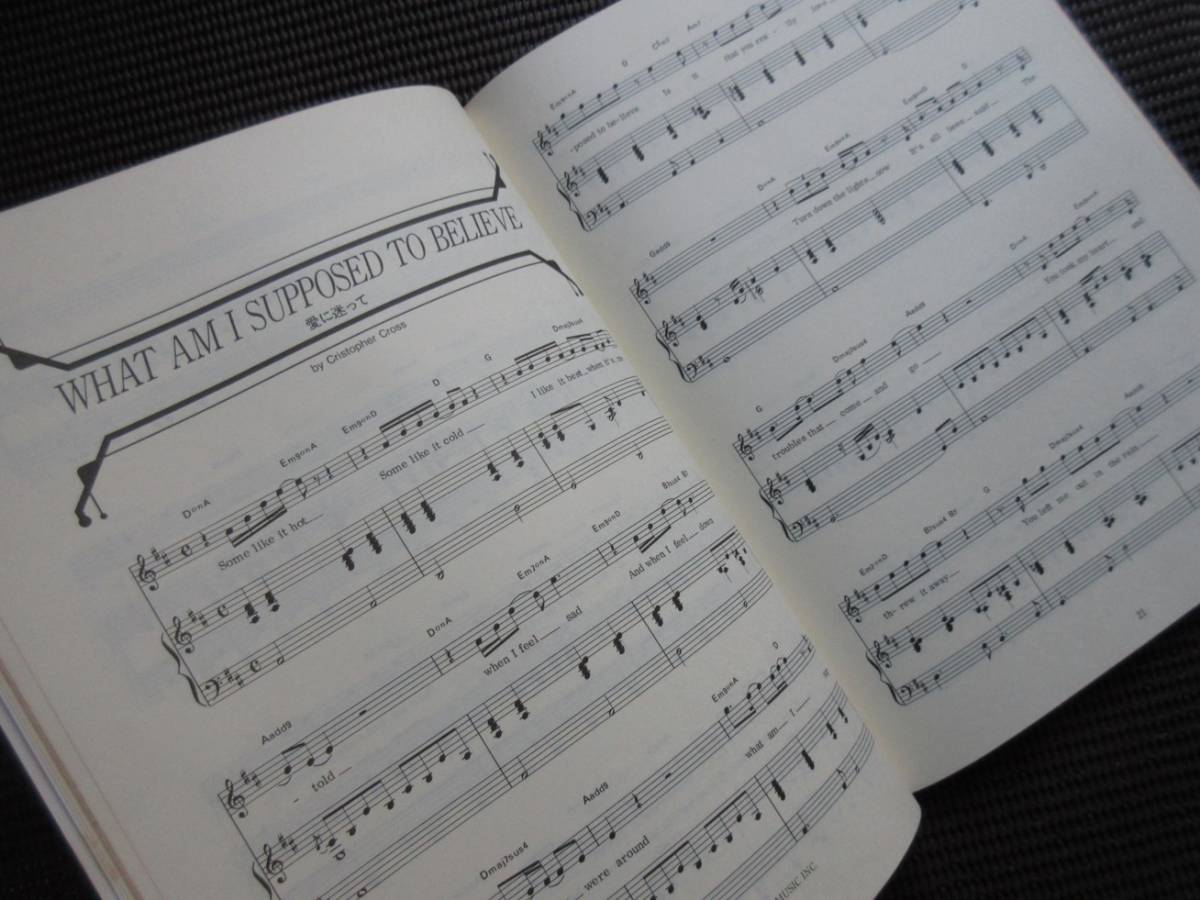 WHAT AM I SUPPOSED TO BELIEVE
愛に迷って
by Cristopher Cross
DonA Em9onA Em9onD D G Dmaj7sus4
Some like it hot Some like it cold I like it best when it's
Aadd9 DonA Em7onA Em9onD B7sus4 B7
- told when I feel sad And when I feel down
Dmaj7sus4 Aadd9 Em9onA D
were around what am I
MUSIC INC.
Em9onA D
-posed to be-lieve Is it that you rea - lly
Gadd9 DonA Em9onA Em9onD D
Turn down the lights now It's all The
G Dmaj7sus4 Aadd9 DonA Em9onA
troubles that come and go You took my heart and
Em9onD B7sus4 B7 G Dmaj7sus4 Aadd9
th-rew it away You left me out in the rain
21